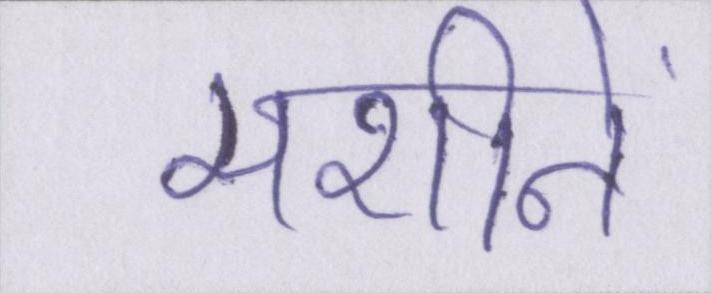 मशीनें